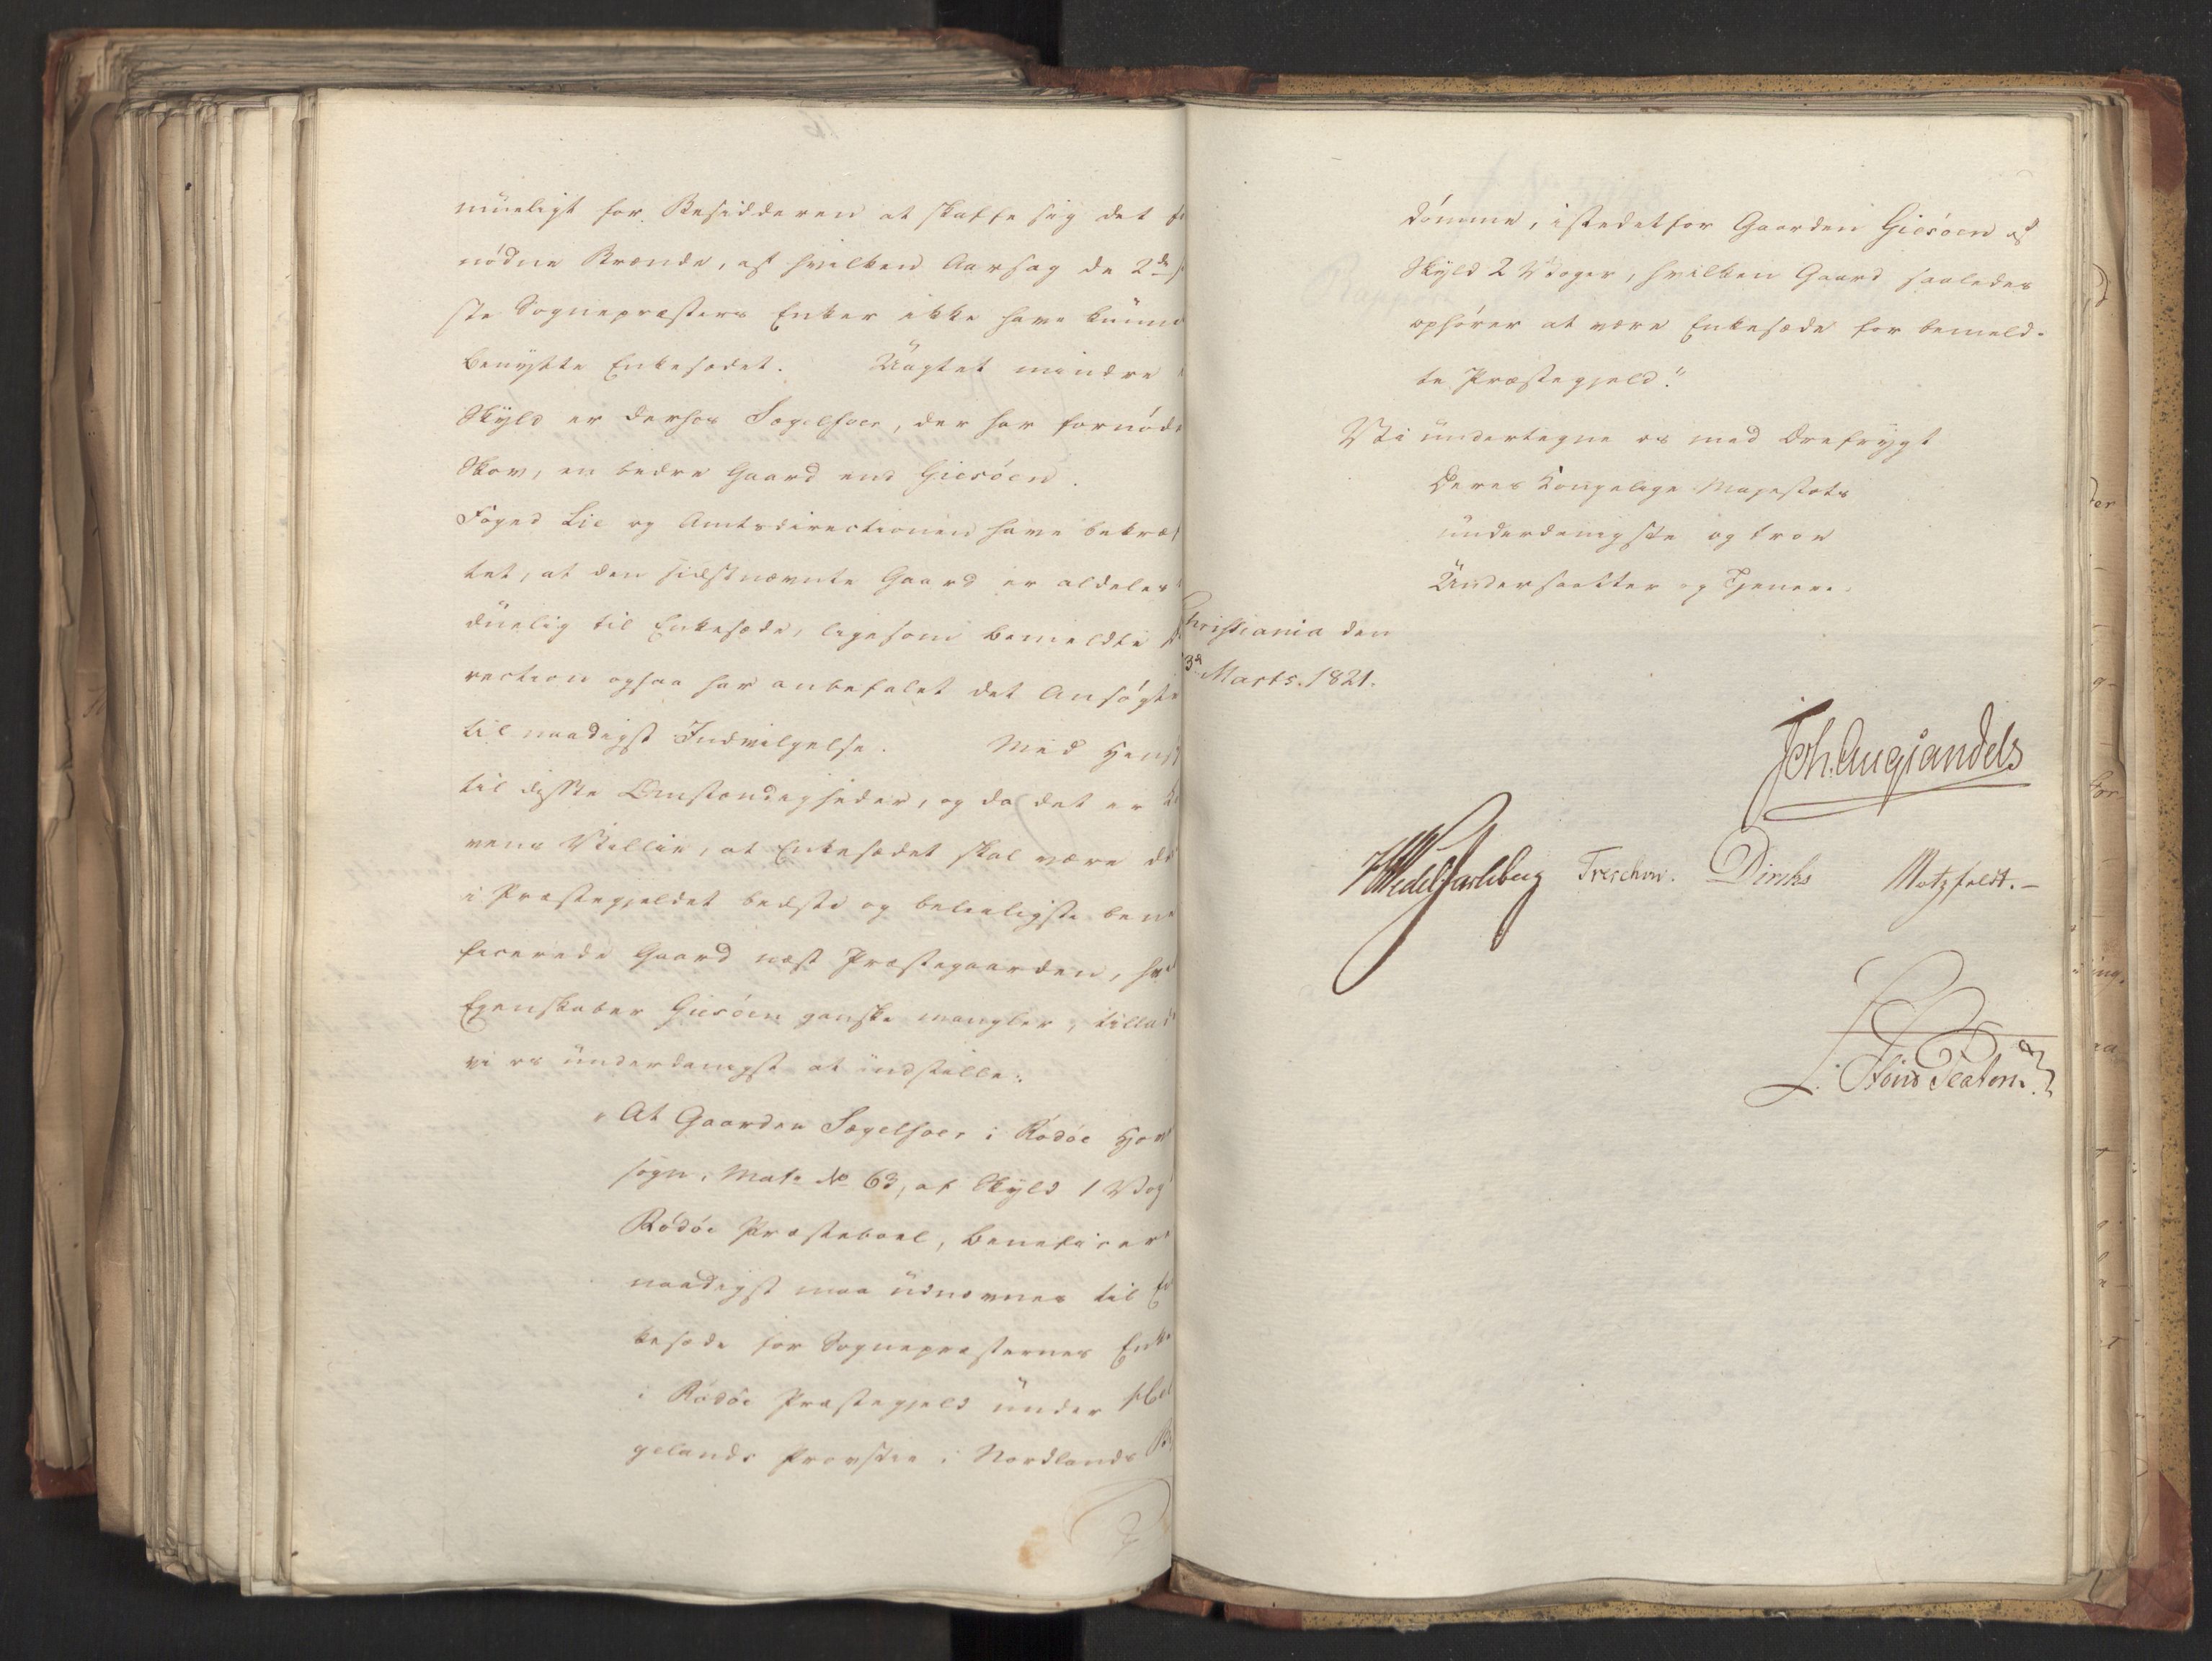 müeligt for Besidderen at skaffe sig det
nödne Brænde, af hvilken Aarsag de 2de
ste Sognepræsters Enker ikke have kunne
benytte Enkesædet. Uagtet mindre
Skyld er derhos Sægelfoer, der har fornöd
Skov, en bedre Gaard end Giesöen.
Foged Lie og Amtsdirectionen have bekræf
tet, at den sidstnævnte Gaard er aldeles
duelig til Enkesæde, ligesom bemeldte
rection ogsaa har anbefalet det Ansögte
til naadigst Indvilgelse. Med Hens
til disse Omstændigheder, og da det er
vens Villie, at Enkesædet skal være de
i Præstegjeldet bedste og beleiligste bene
ficerede Gaard næst Præstegaarden, hvi
Egenskaber Giesöen ganske mangler, tillad
vi os underdanigst at indstille:
"At Gaarden Sægelfoer i Rödöe Hov
sogn, Mat. No 63, af Skyld 1 Vog
Rödöe Præsteboel, beneficeret
naadigst maa udnævnes til En
kesæde for Sognepræsternes Enke
i Rödöe Præstegjeld under Hel
gelands Provstie i Nordlands Bi
dömme, istedetfor Gaarden Giesöen af
Skyld 2 Voger, hvilken Gaard saaledes
ophörer at være Enkesæde for bemeld-
te Præstegjeld."
Vi undertegne os med Ærefrygt
Deres Kongelige Majestæts
underdanigste og troe
Undersaatter og Tjenere.
Christiania den
3d Marts 1821.
Joh. Aug Sandels
HWedel Jarlsberg Treschow. Diriks Motzfeldt.-
L. Stoud Platou